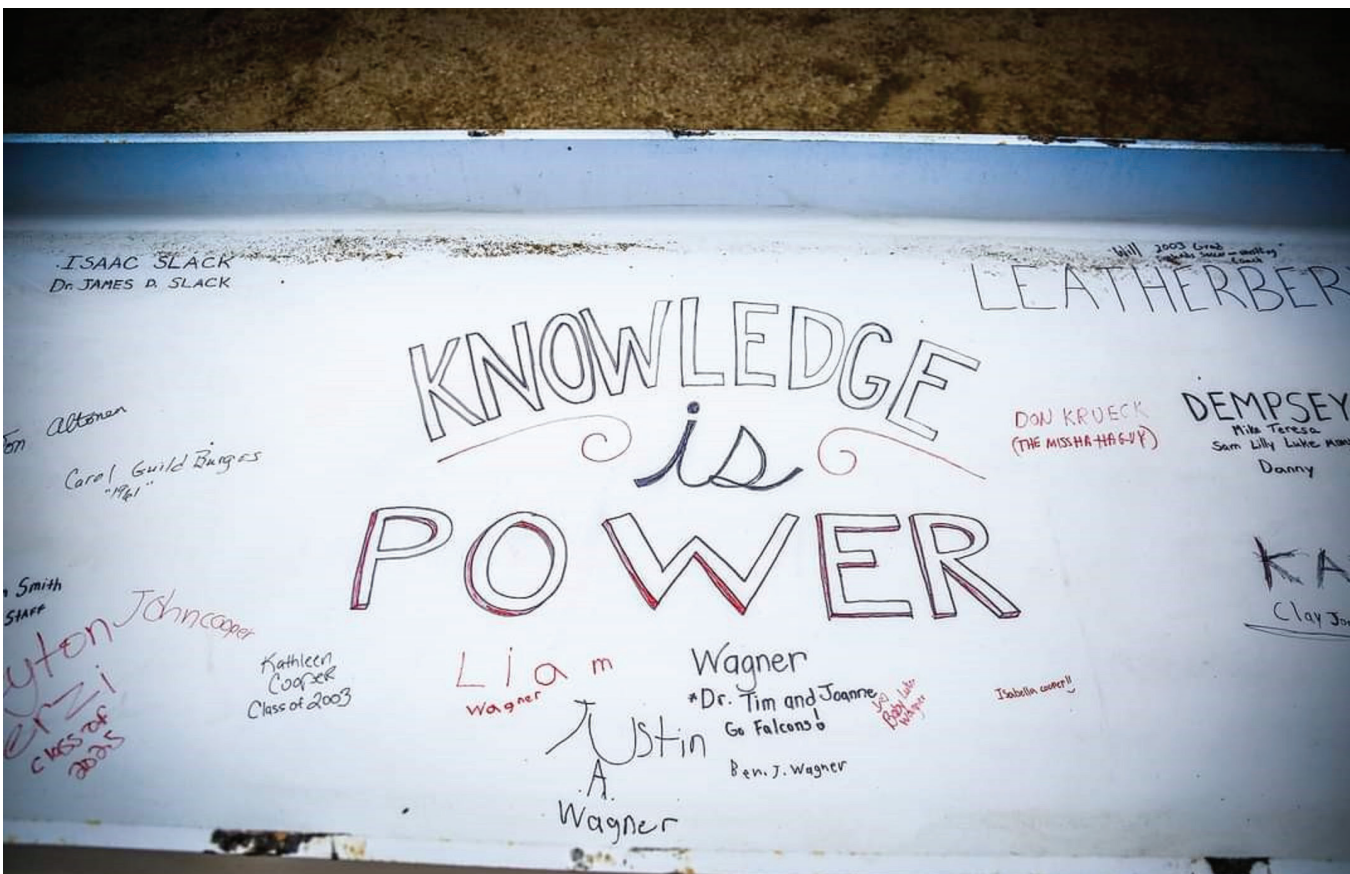 ISAAC SLACK
Dr. JAMES D. SLACK
Will 2003 Grad
Coach
LEATHERBER
KNOWLEDGE
is
POWER
Altonen
Carol Guild Burgos
"1961"
DON KRUECK
(THE MISSHA HA GUY)
DEMPSEY
Mike Teresa
Sam Lilly Luke
Danny
Smith
STAFF
John cooper
yton
erzi
class of
2025
Kathleen
Cooper
Class of 2003
Liam
Wagner
Justin
A.
Wagner
Wagner
*Dr. Tim and Joanne
Go Falcons!
Ben. J. Wagner
Baby Luke
Wagner
Isabella cooper!!
KA
Clay Jo